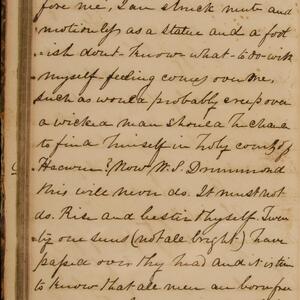 fore me, I am struck mute and
motionless as a statue and a fool-
ish dont-know what-to-do-with
myself-feeling comes over me,
such as would probably creep over
a wicked man should he chance
to find himself in holy court of
Heaven? Now W. S. Drummond
this will never do. It must not
do. Rise and bestir thyself. Twen
ty one suns (not all bright) have
passed over thy head and it is time
to know that all men are born free